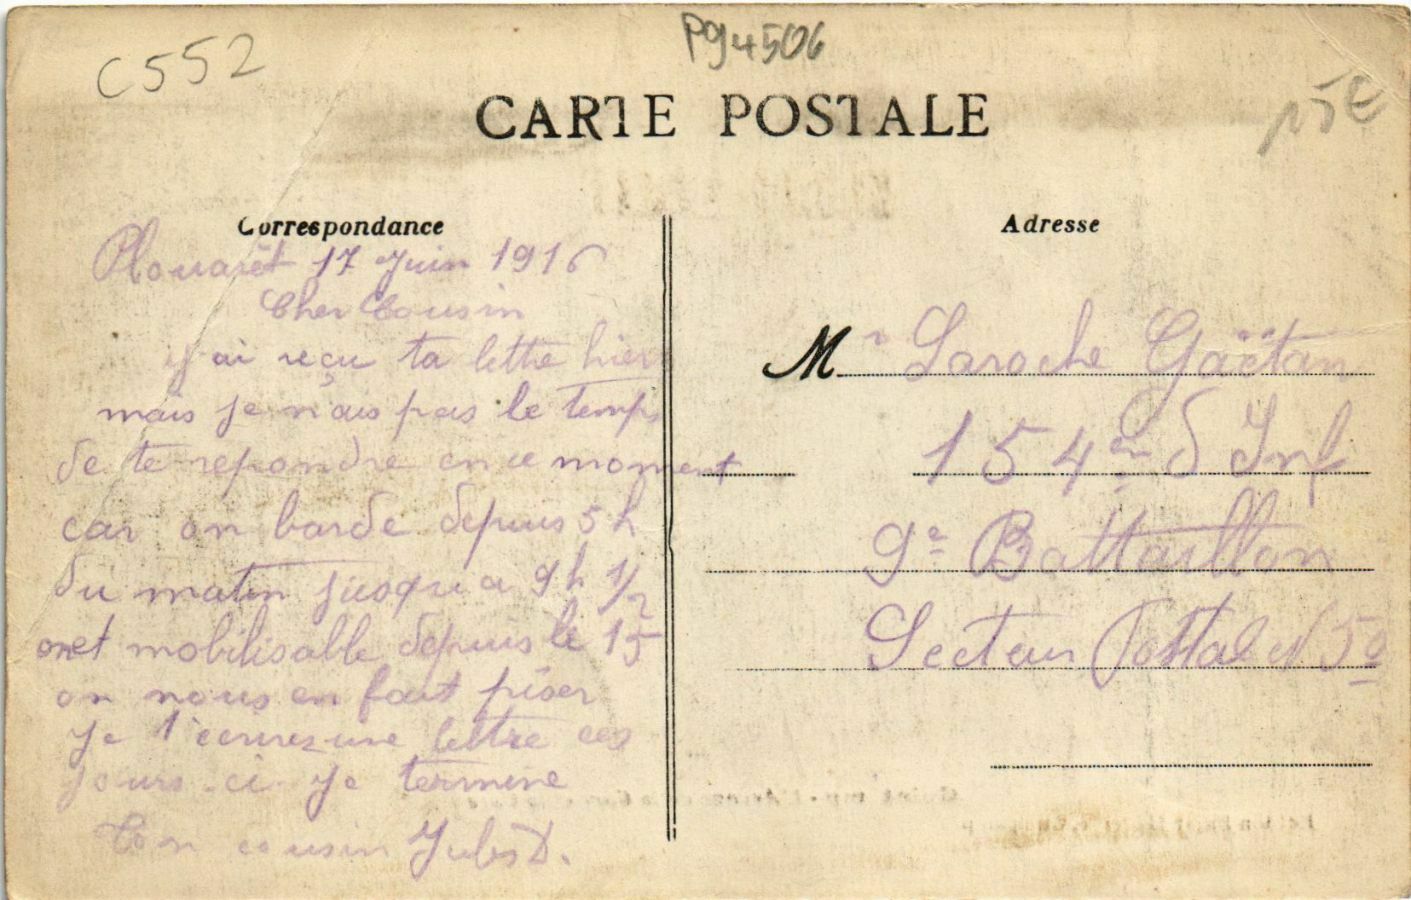 C552
P94506
15€
CARTE POSTALE
Correspondance
Plouarêt 17 Juin 1916
Cher Cousin
j'ai reçu ta lettre hier
mais je n'ais pas le temps
de te repondre en ce moment
car on barde depuis 5 h
du matin jusqu a 9 h 1/2
onet mobilisable depuis le 15
on nous en fait piser
Je t'ecrirez une lettre ces
jours-ci. Je termine
Ton cousin Jules D.
Adresse
Mr Laroche Gaëtan
154em d Inf
9e Battaillon
Secteur Postal N 50